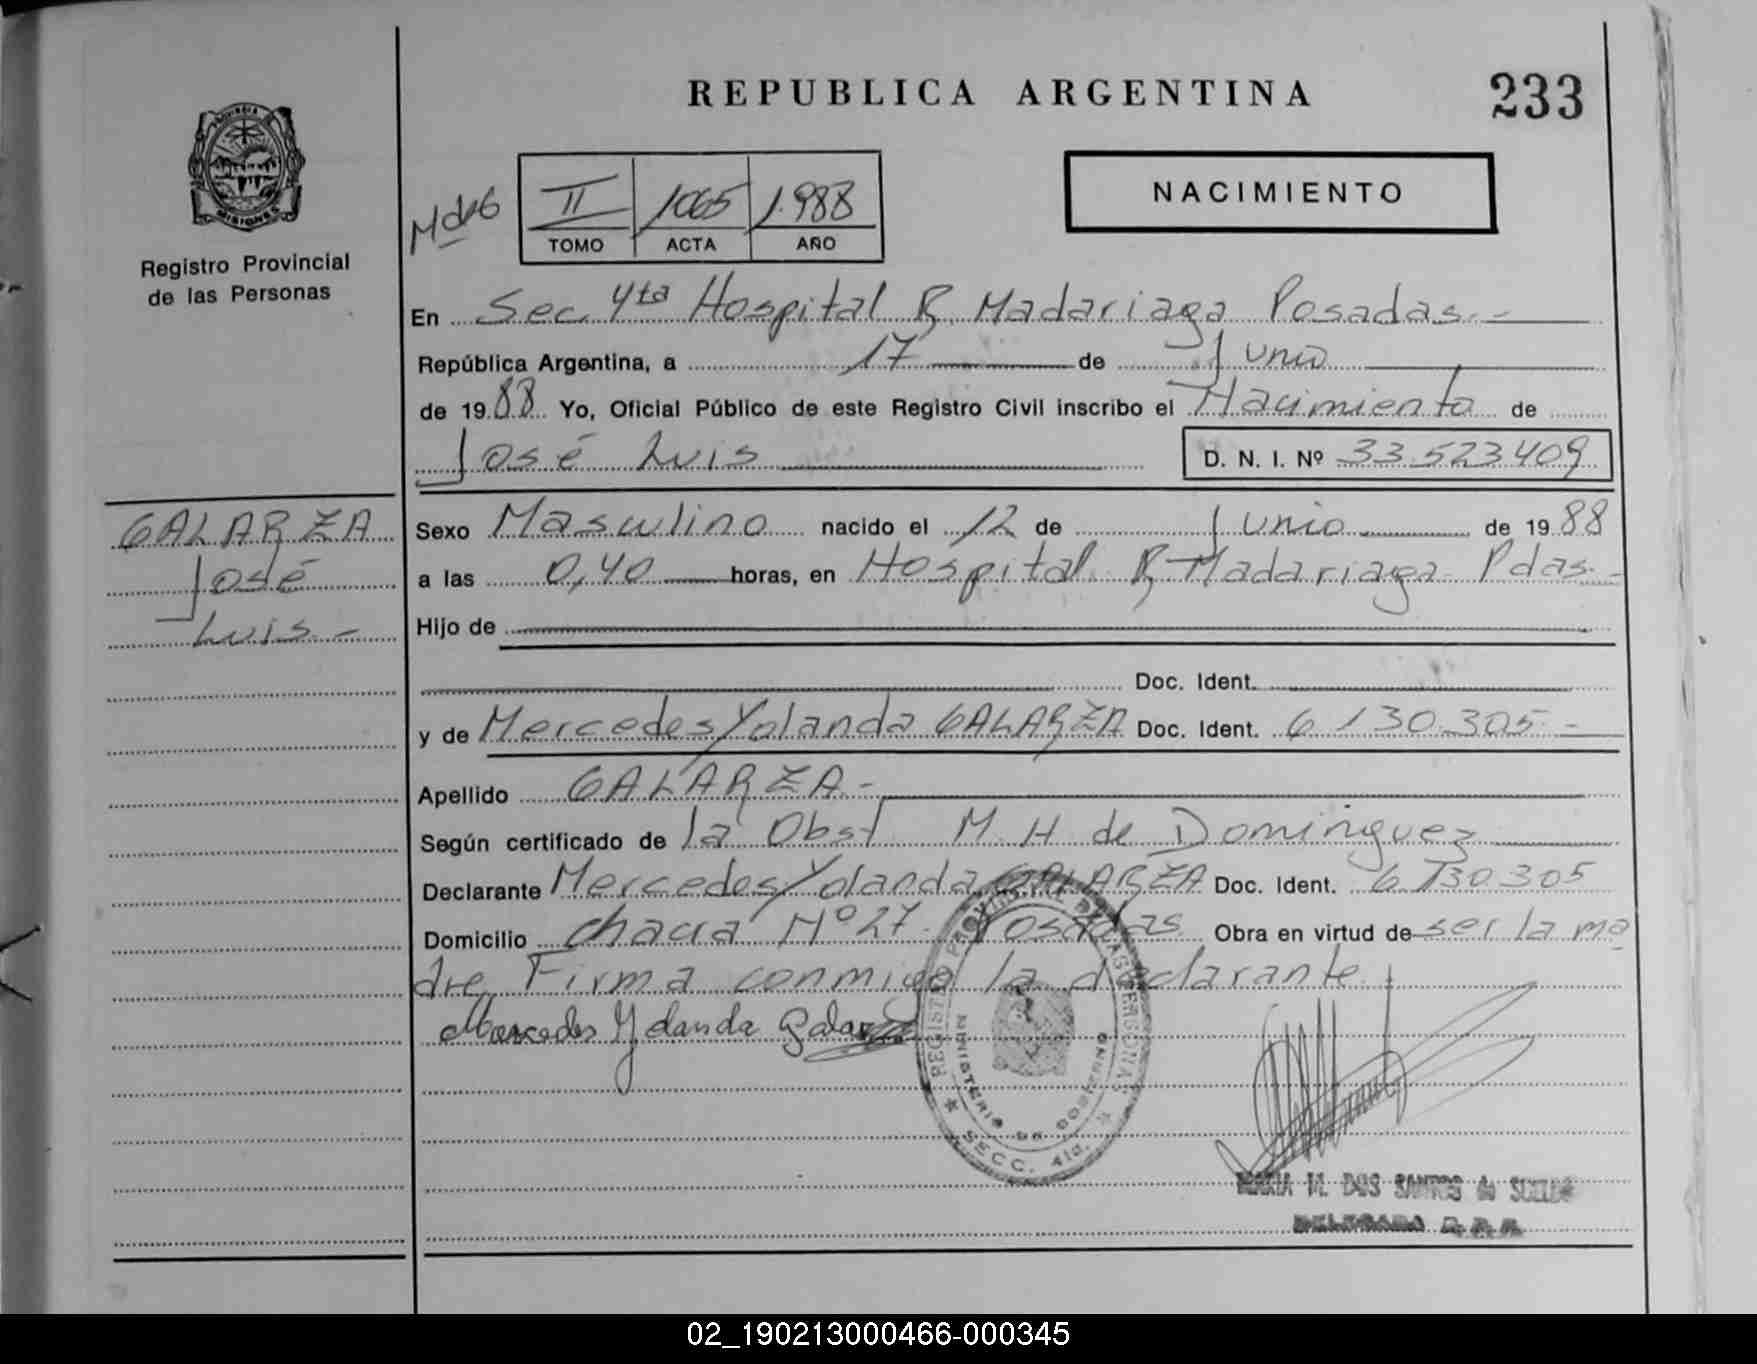 REPUBLICA ARGENTINA
233
PROVINCIA DE MISIONES
Registro Provincial
de las Personas
II 1065 1.988
TOMO ACTA AÑO
NACIMIENTO
En Sec. 4ta Hospital R. Madariaga Posadas.-
República Argentina, a 17 de Junio
de 1988 Yo, Oficial Público de este Registro Civil inscribo el Nacimiento de
José Luis
D. N. I. Nº 33.523.409
GALARZA
José
Luis.-
Sexo Masculino nacido el 12 de Junio de 1988
a las 0,40 horas, en Hospital R. Madariaga Pdas.-
Hijo de
Doc. Ident.
y de Mercedes Yolanda GALARZA Doc. Ident. 6.130.305.-
Apellido GALARZA.-
Según certificado de la Obst M. H. de Dominguez
Declarante Mercedes Yolanda GALARZA Doc. Ident. 6.130.305
Domicilio chacra Nº 27. Posadas Obra en virtud de ser la ma
dre Firma conmigo la declarante.
Mercedes Yolanda Galarza
REGISTRO PROVINCIAL DE LAS PERSONAS
MINISTERIO DE GOBIERNO
SECC. 4ta.
MARIA M. DOS SANTOS de
DELEGADA R.P.P.
02_190213000466-000345